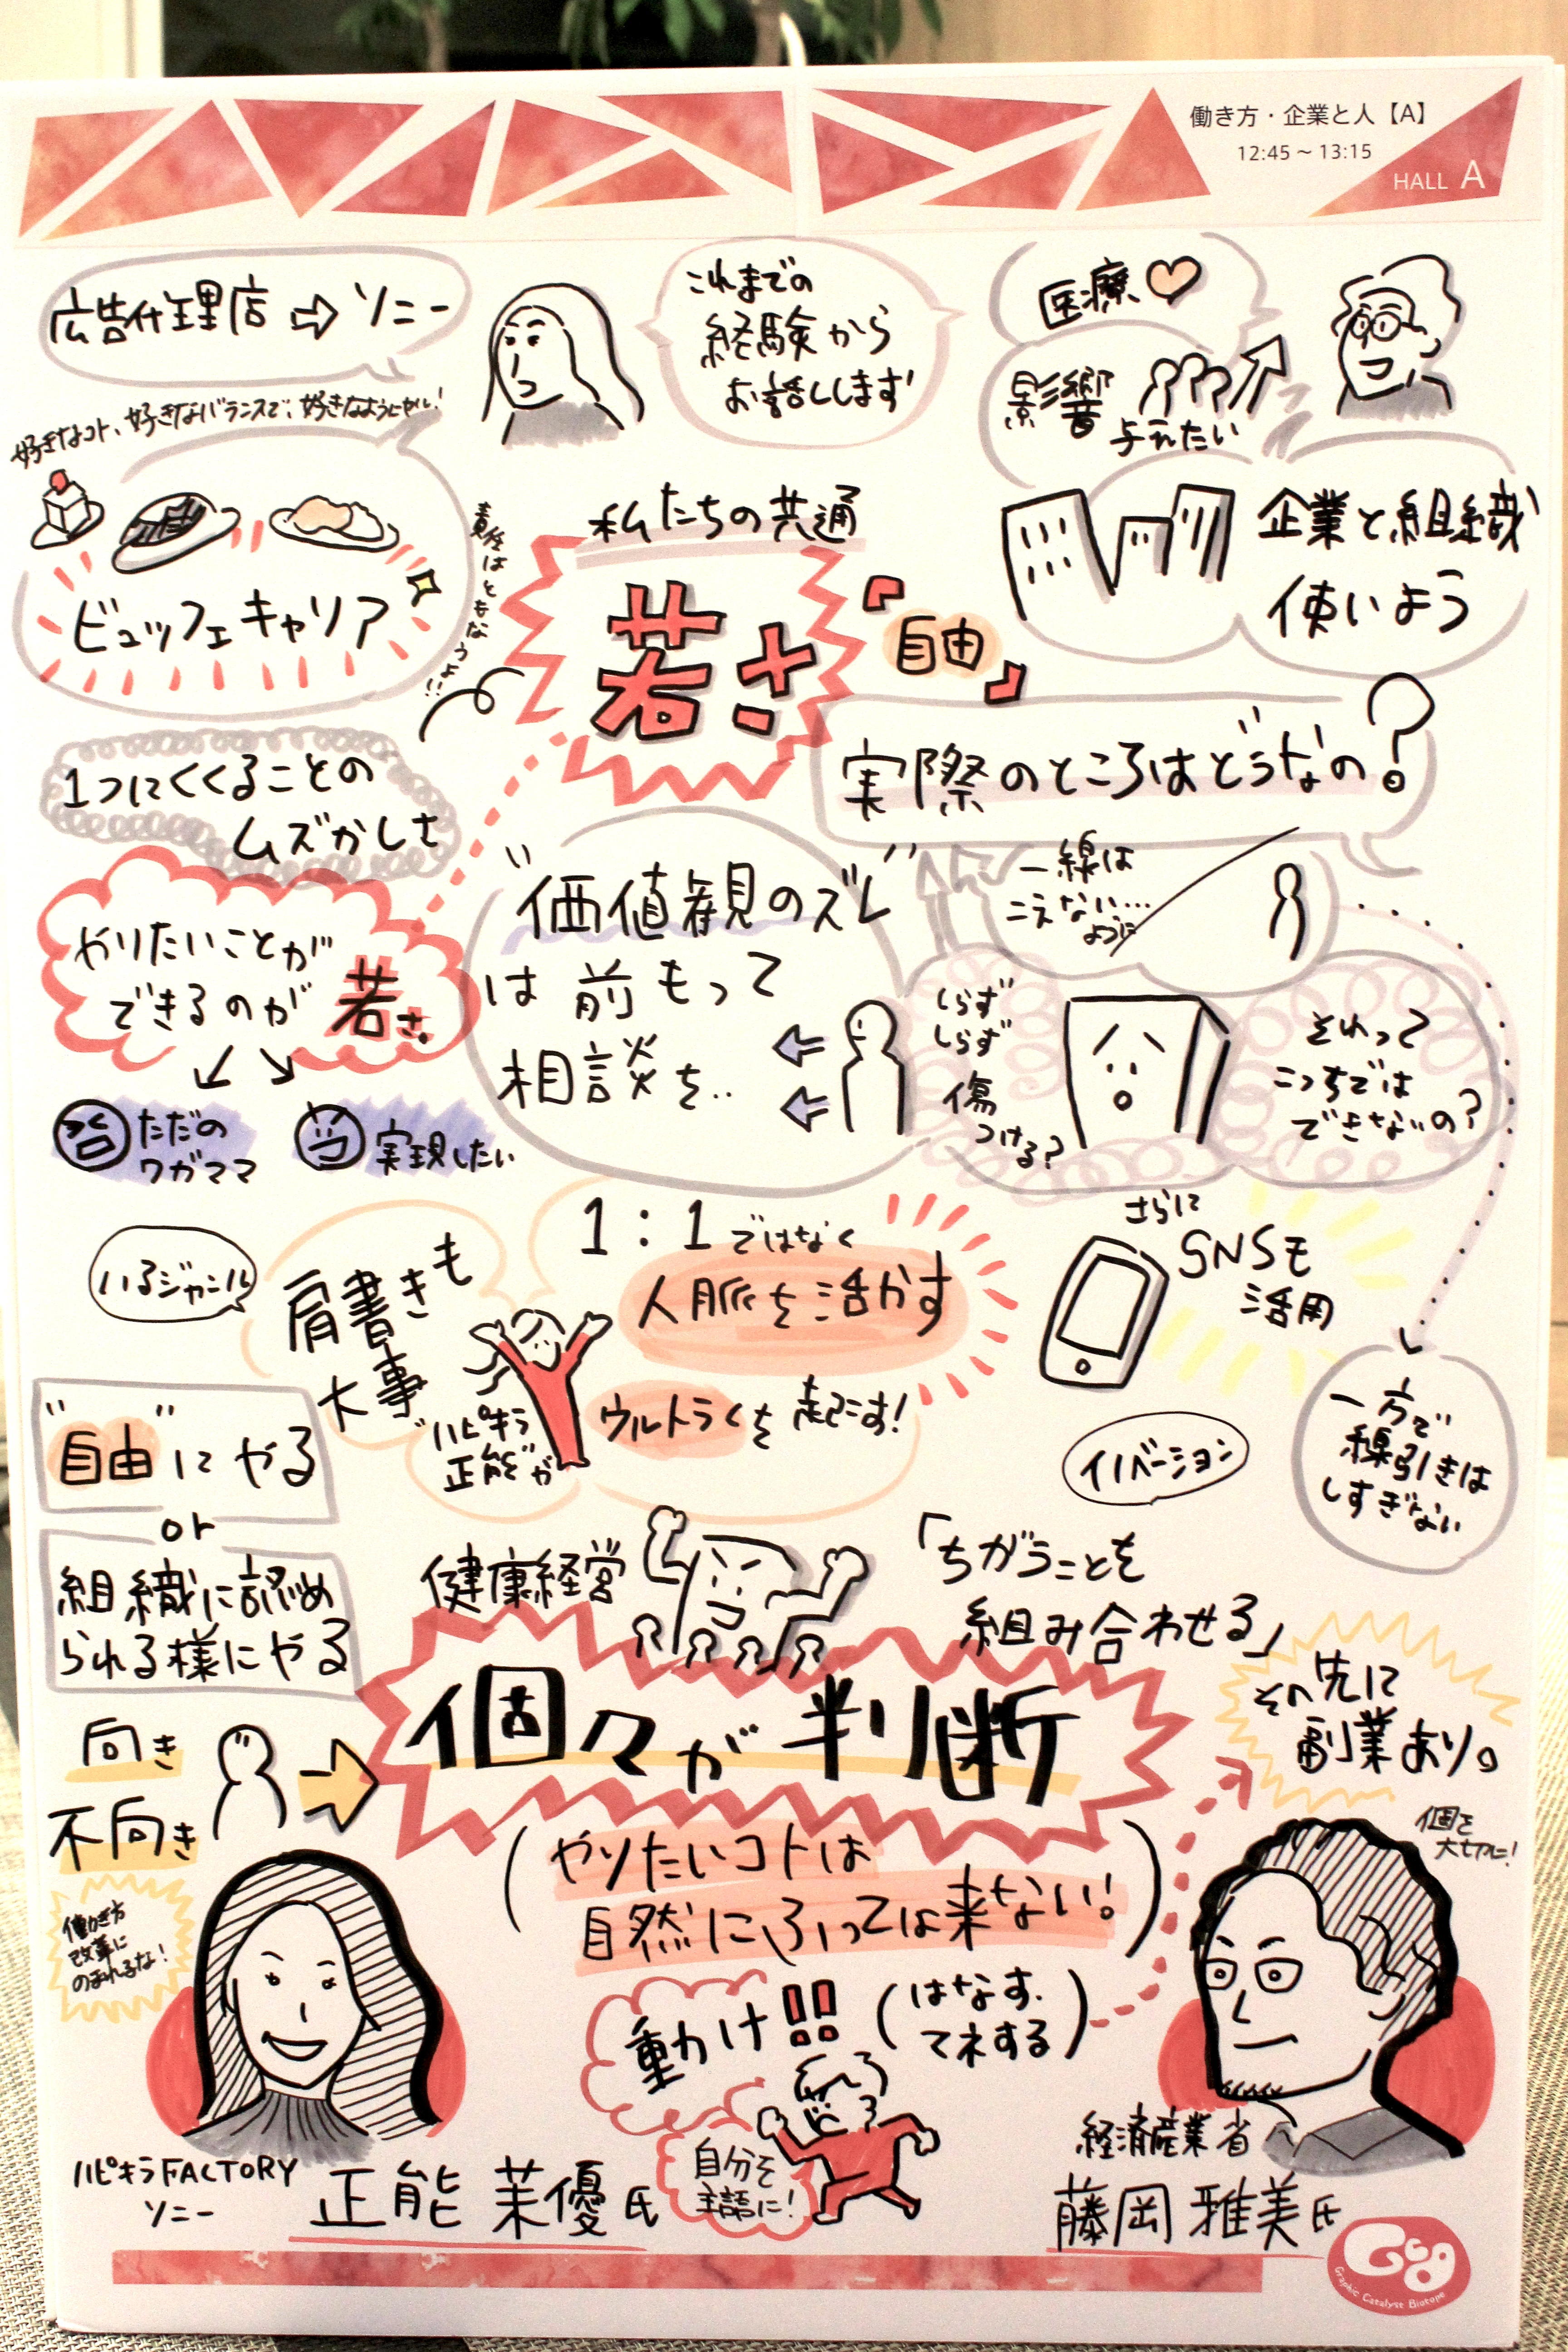 働き方・企業と人【A】
12:45～13:15
HALL A
広告代理店⇨ソニー
これまでの
経験から
お話しします
医療♡
影響
与えたい
好きなコト、好きなバランスで、好きなようにやれ!
ビュッフェキャリア
責任はともなうよ!!
私たちの共通
若さ
『自由』
企業と組織
使いよう
実際のところはどうなの?
1つにくくることの
ムズかしさ
やりたいことが
できるのが若さ
ただの
ワガママ
実現したい
"価値観のズレ"
は前もって
相談を..
一線は
こえない…
ように
しらず
しらず
傷
つける?
それって
こっちでは
できないの?
いるジャンル
肩書きも
大事
1:1ではなく
人脈を活かす
ハピキラ
正能が
ウルトラCを起こす!
さらに
SNSも
活用
イノベーション
一方で
線引きは
しすぎない
"自由"にやる
or
組織に認め
られる様にやる
健康経営
「ちがうことを
組み合わせる」
向き
不向き
個々が判断
その先に
副業あり。
(やりたいコトは
自然にふっては来ない!)
個を
大切に!
働き方
改革に
のまれるな!
動け!!
(はなす.
てネする)
自分を
主語に!
ハピキラFACTORY
ソニー
正能 茉優氏
経済産業省
藤岡 雅美氏
GCB
Graphic Catalyst Biotope